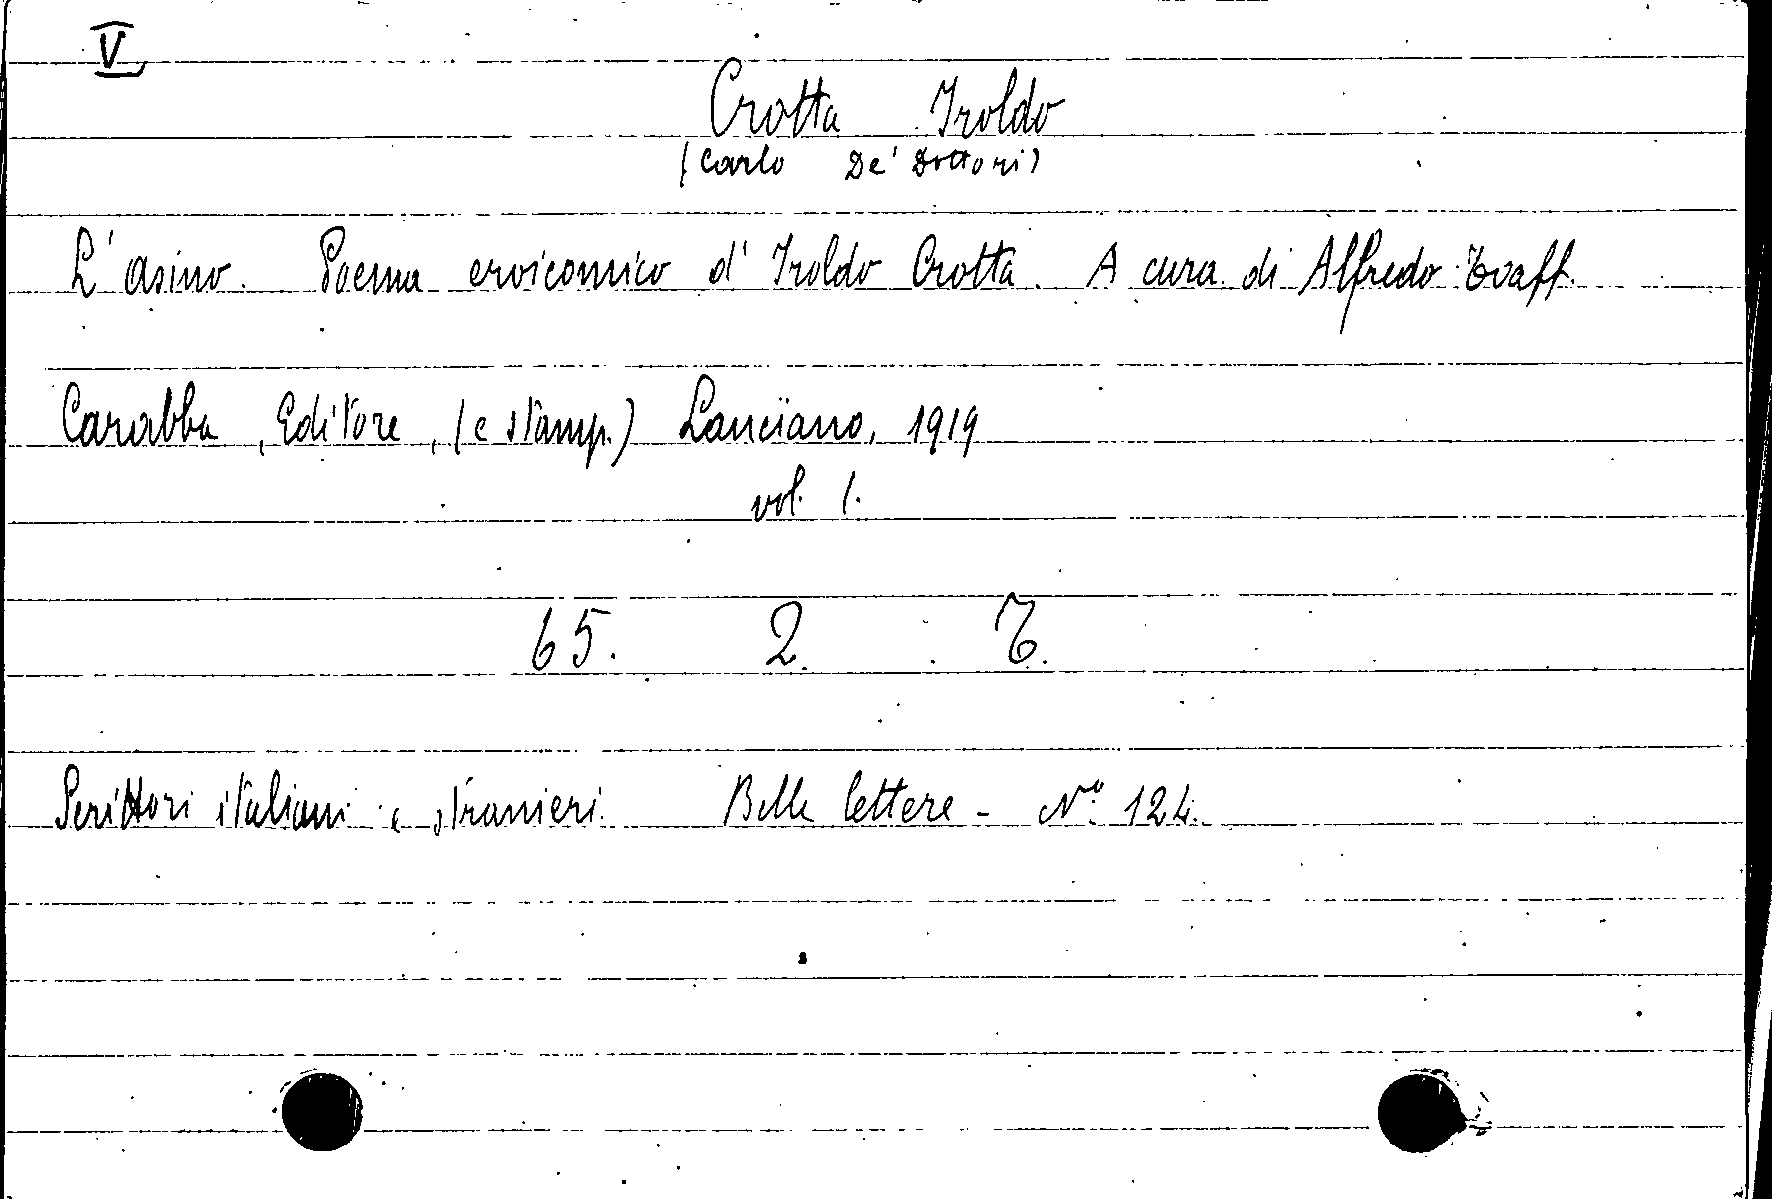 V
Crotta Iroldo
(Carlo De' Dottori)
L'asino. Poema eroicomico d'Iroldo Crotta. A cura di Alfredo
Carabba, Editore, (e stamp.) Lanciano, 1919
vol. 1.
65. 2.
Scrittori italiani e stranieri. Belle lettere - No. 124.